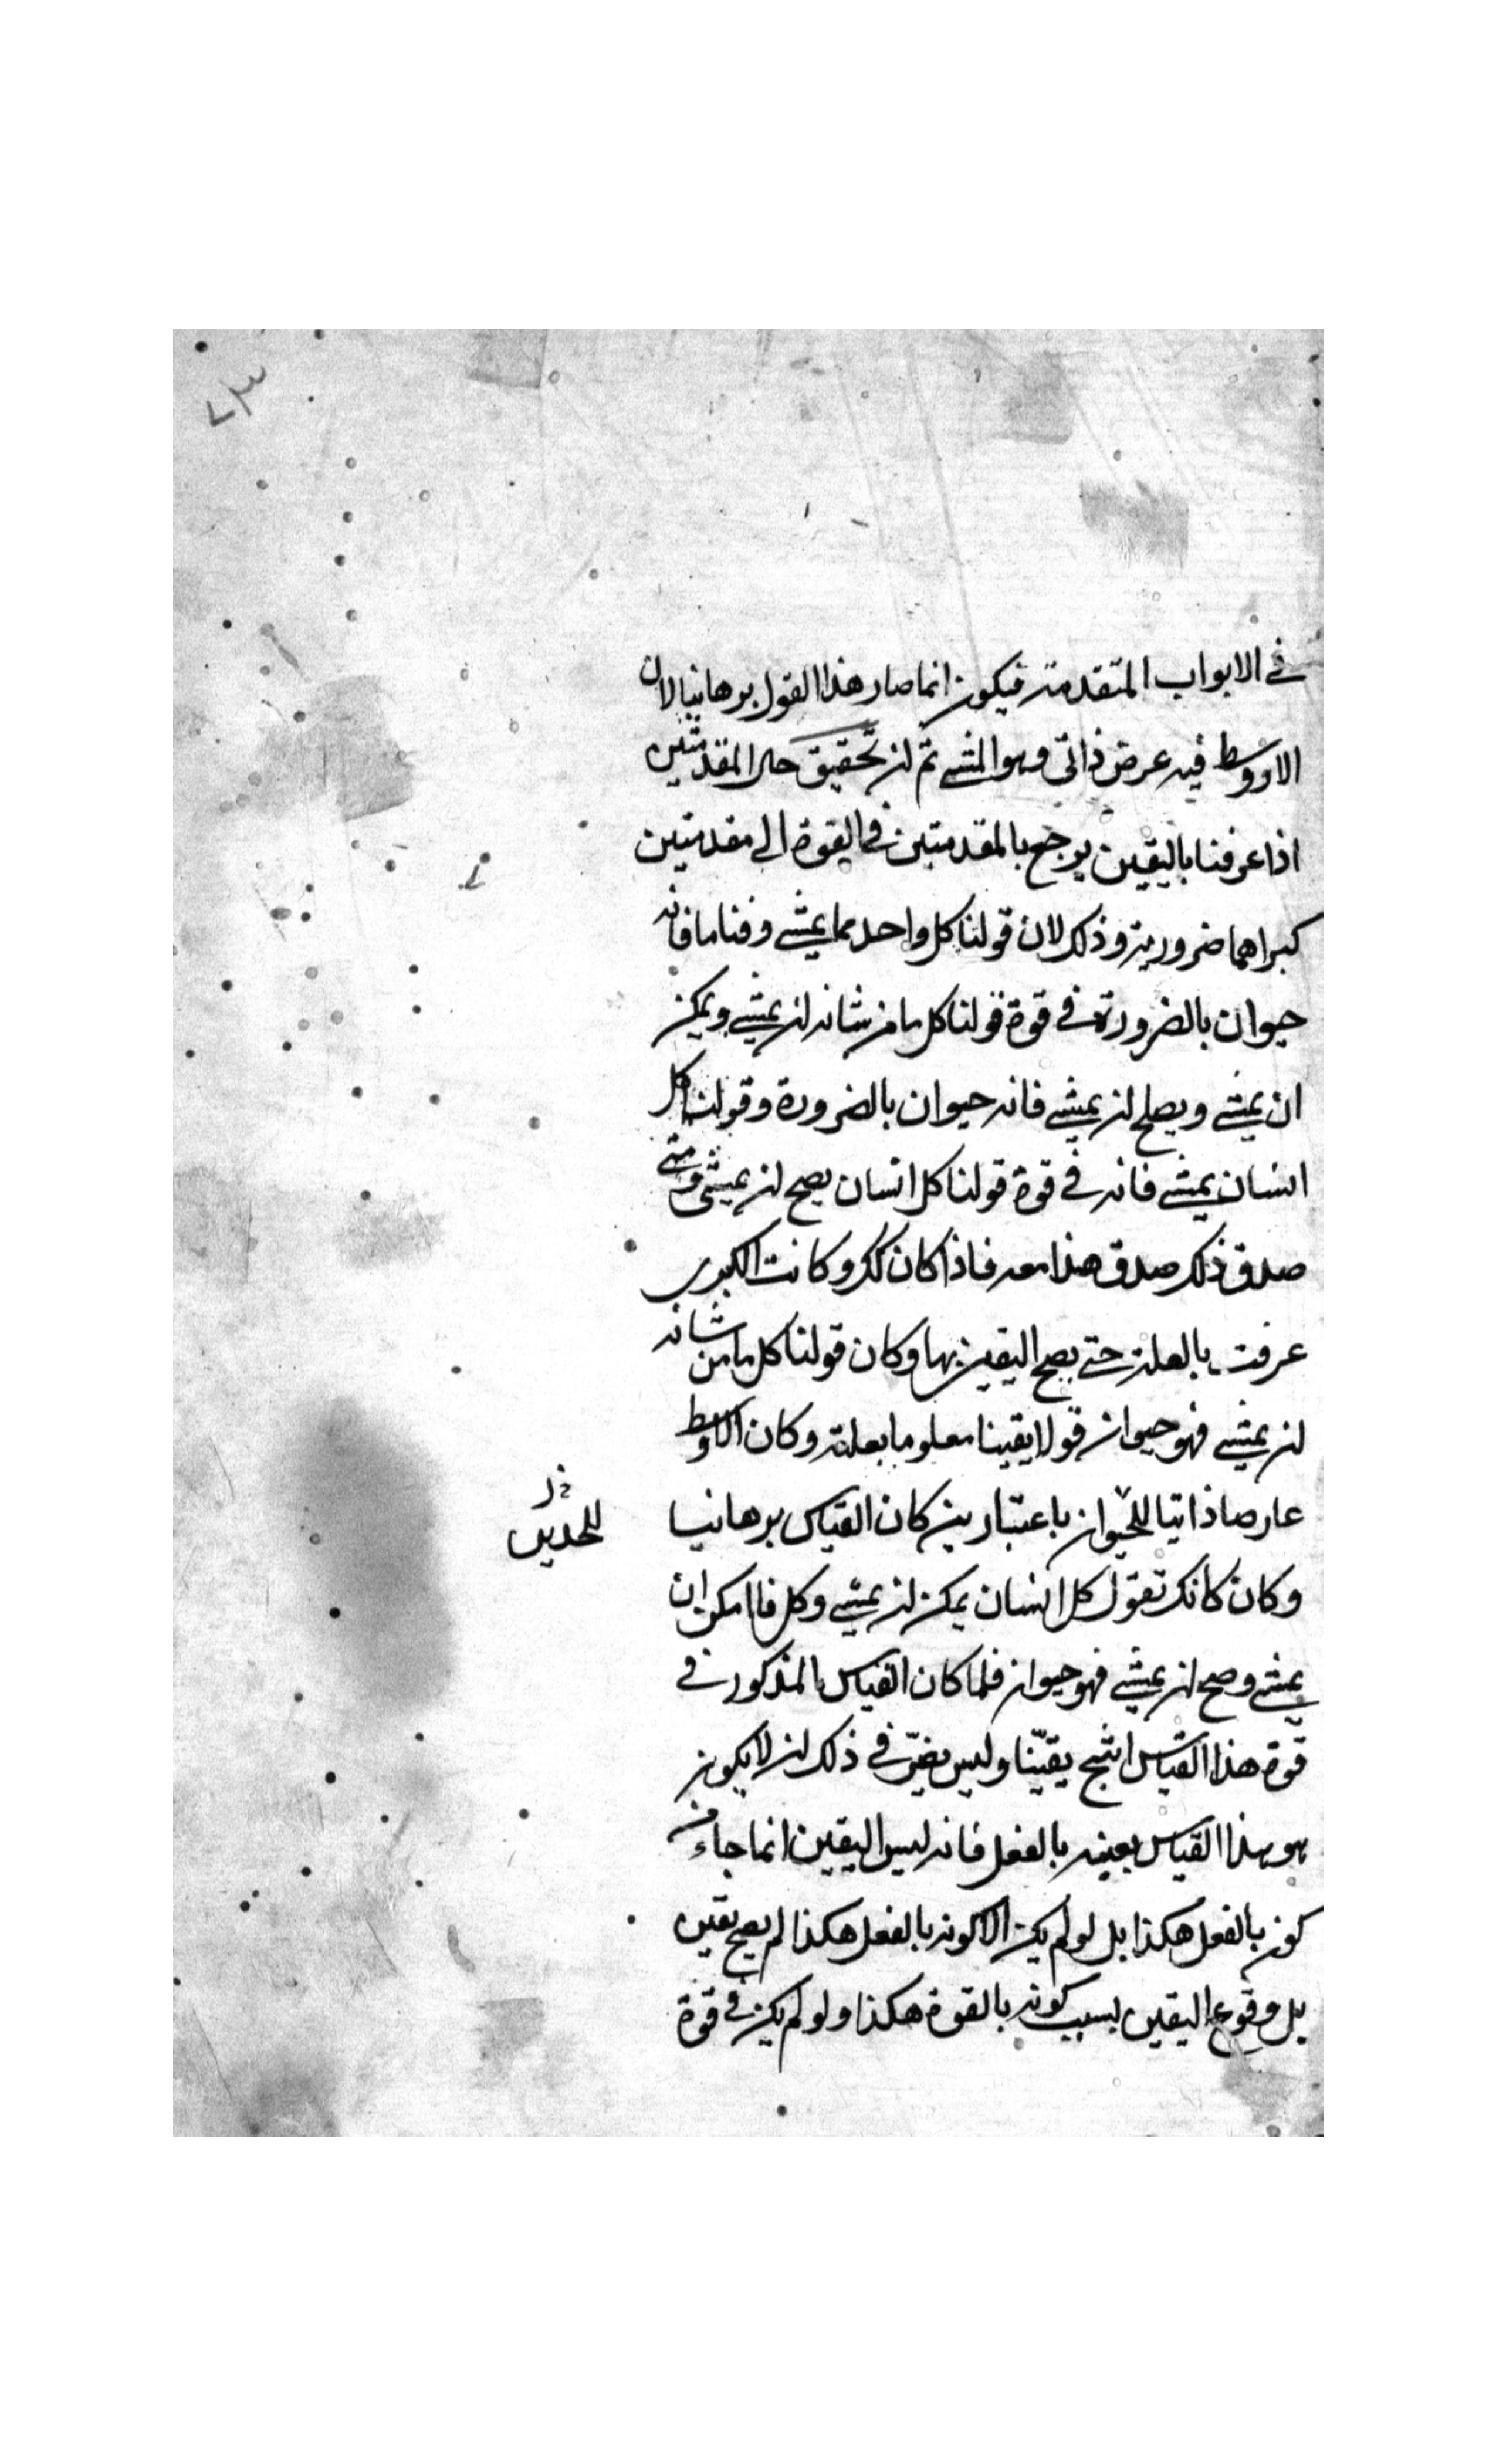 ٧٣
في الابواب المتقدمة فيكون انما صار هذا القول برهانيا لان
الاوسط فيه عرض ذاتي وهو المشي ثم ان تحقيق حال المقدمتين
اذا عرفنا باليقين يرجع بالمقدمتين في القوة الى مقدمتين
كبراهما ضرورية وذلك لان قولنا كل واحد مما يمشي وقتا ما فانه
حيوان بالضرورة في قوة قولنا كل ما من شانه ان يمشي ويمكن
ان يمشي ويصلح ان يمشي فانه حيوان بالضرورة وقولنا كل
انسان يمشي فانه في قوة قولنا كل انسان يصح ان يمشي ومتى
صدق ذلك صدق هذا معه فاذا كان كذلك وكانت الكبرى
عرفت بالعلة حتى يصح اليقين بها وكان قولنا كل ما من شانه
ان يمشي فهو حيوان قولا يقينا معلوما بعلته وكان الاوسط
عارضا ذاتيا للحيوان باعتبارين كان القياس برهانيا
للحدين
وكان كانك تقول كل انسان يمكن ان يمشي وكل ما امكن ان
يمشي وصح ان يمشي فهو حيوان فلما كان القياس المذكور في
قوة هذا القياس انتج يقينا وليس يضر في ذلك ان لا يكون
هو هذا القياس بعينه بالفعل فانه ليس اليقين انما جاء من
كونه بالفعل هكذا بل لو لم يكن الا كونه بالفعل هكذا لم يصح يقين
بل وقوع اليقين بسبب كونه بالقوة هكذا ولو لم يكن في قوة